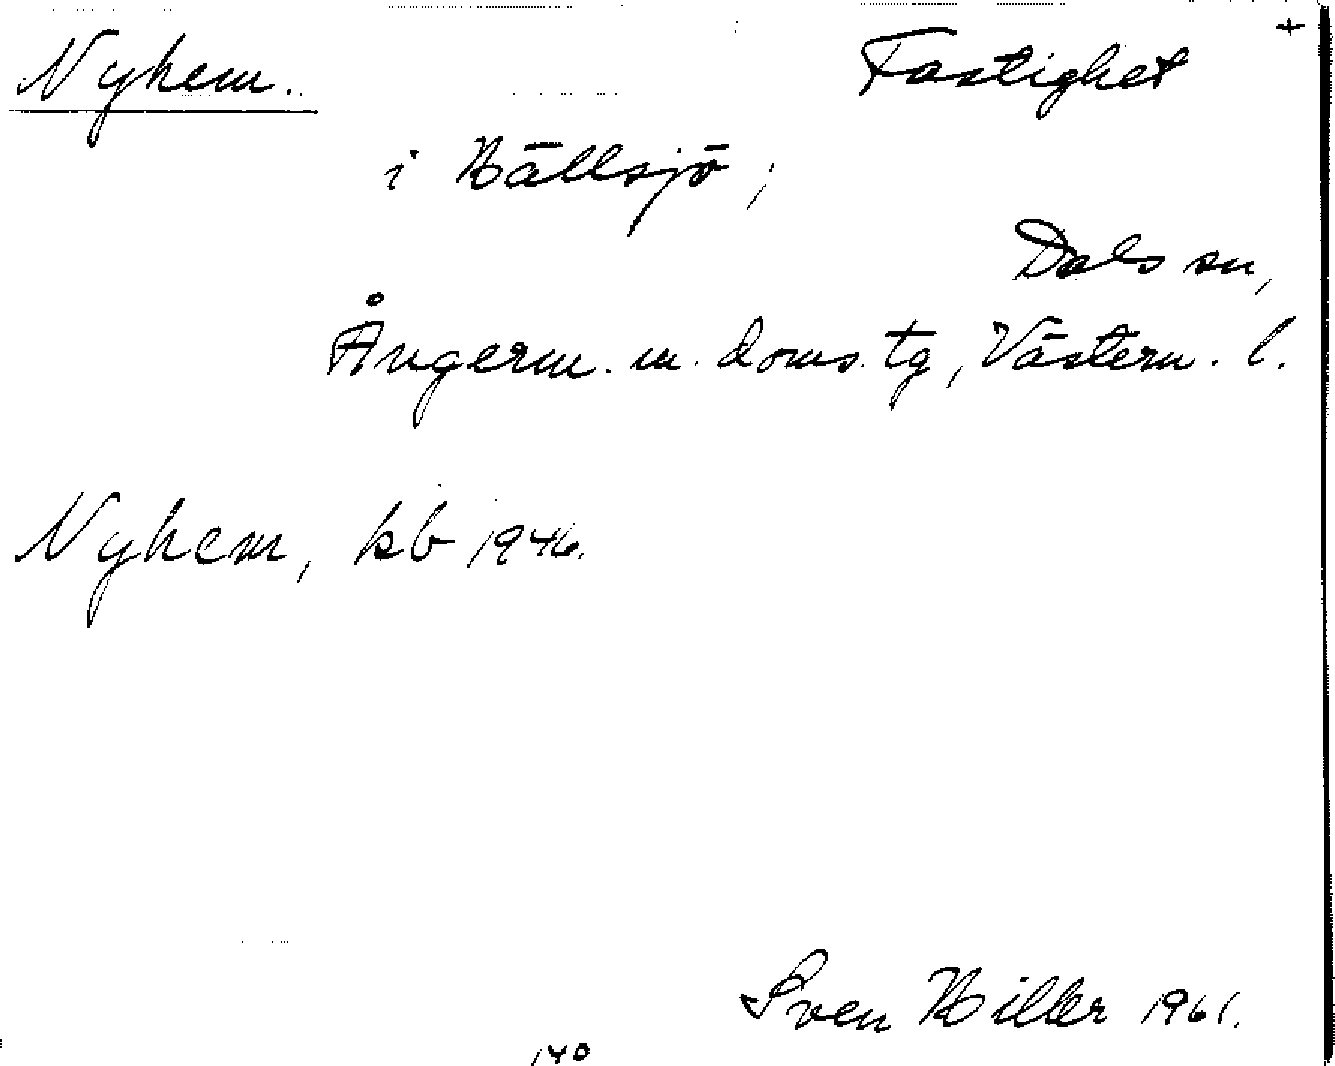 Nyhem. Fastighet +
i Hällsjö;
Dals sn,
Ångerm. m. doms. tg, Västern. l.
Nyhem, kb 1946.
Sven Hiller 1961.
140